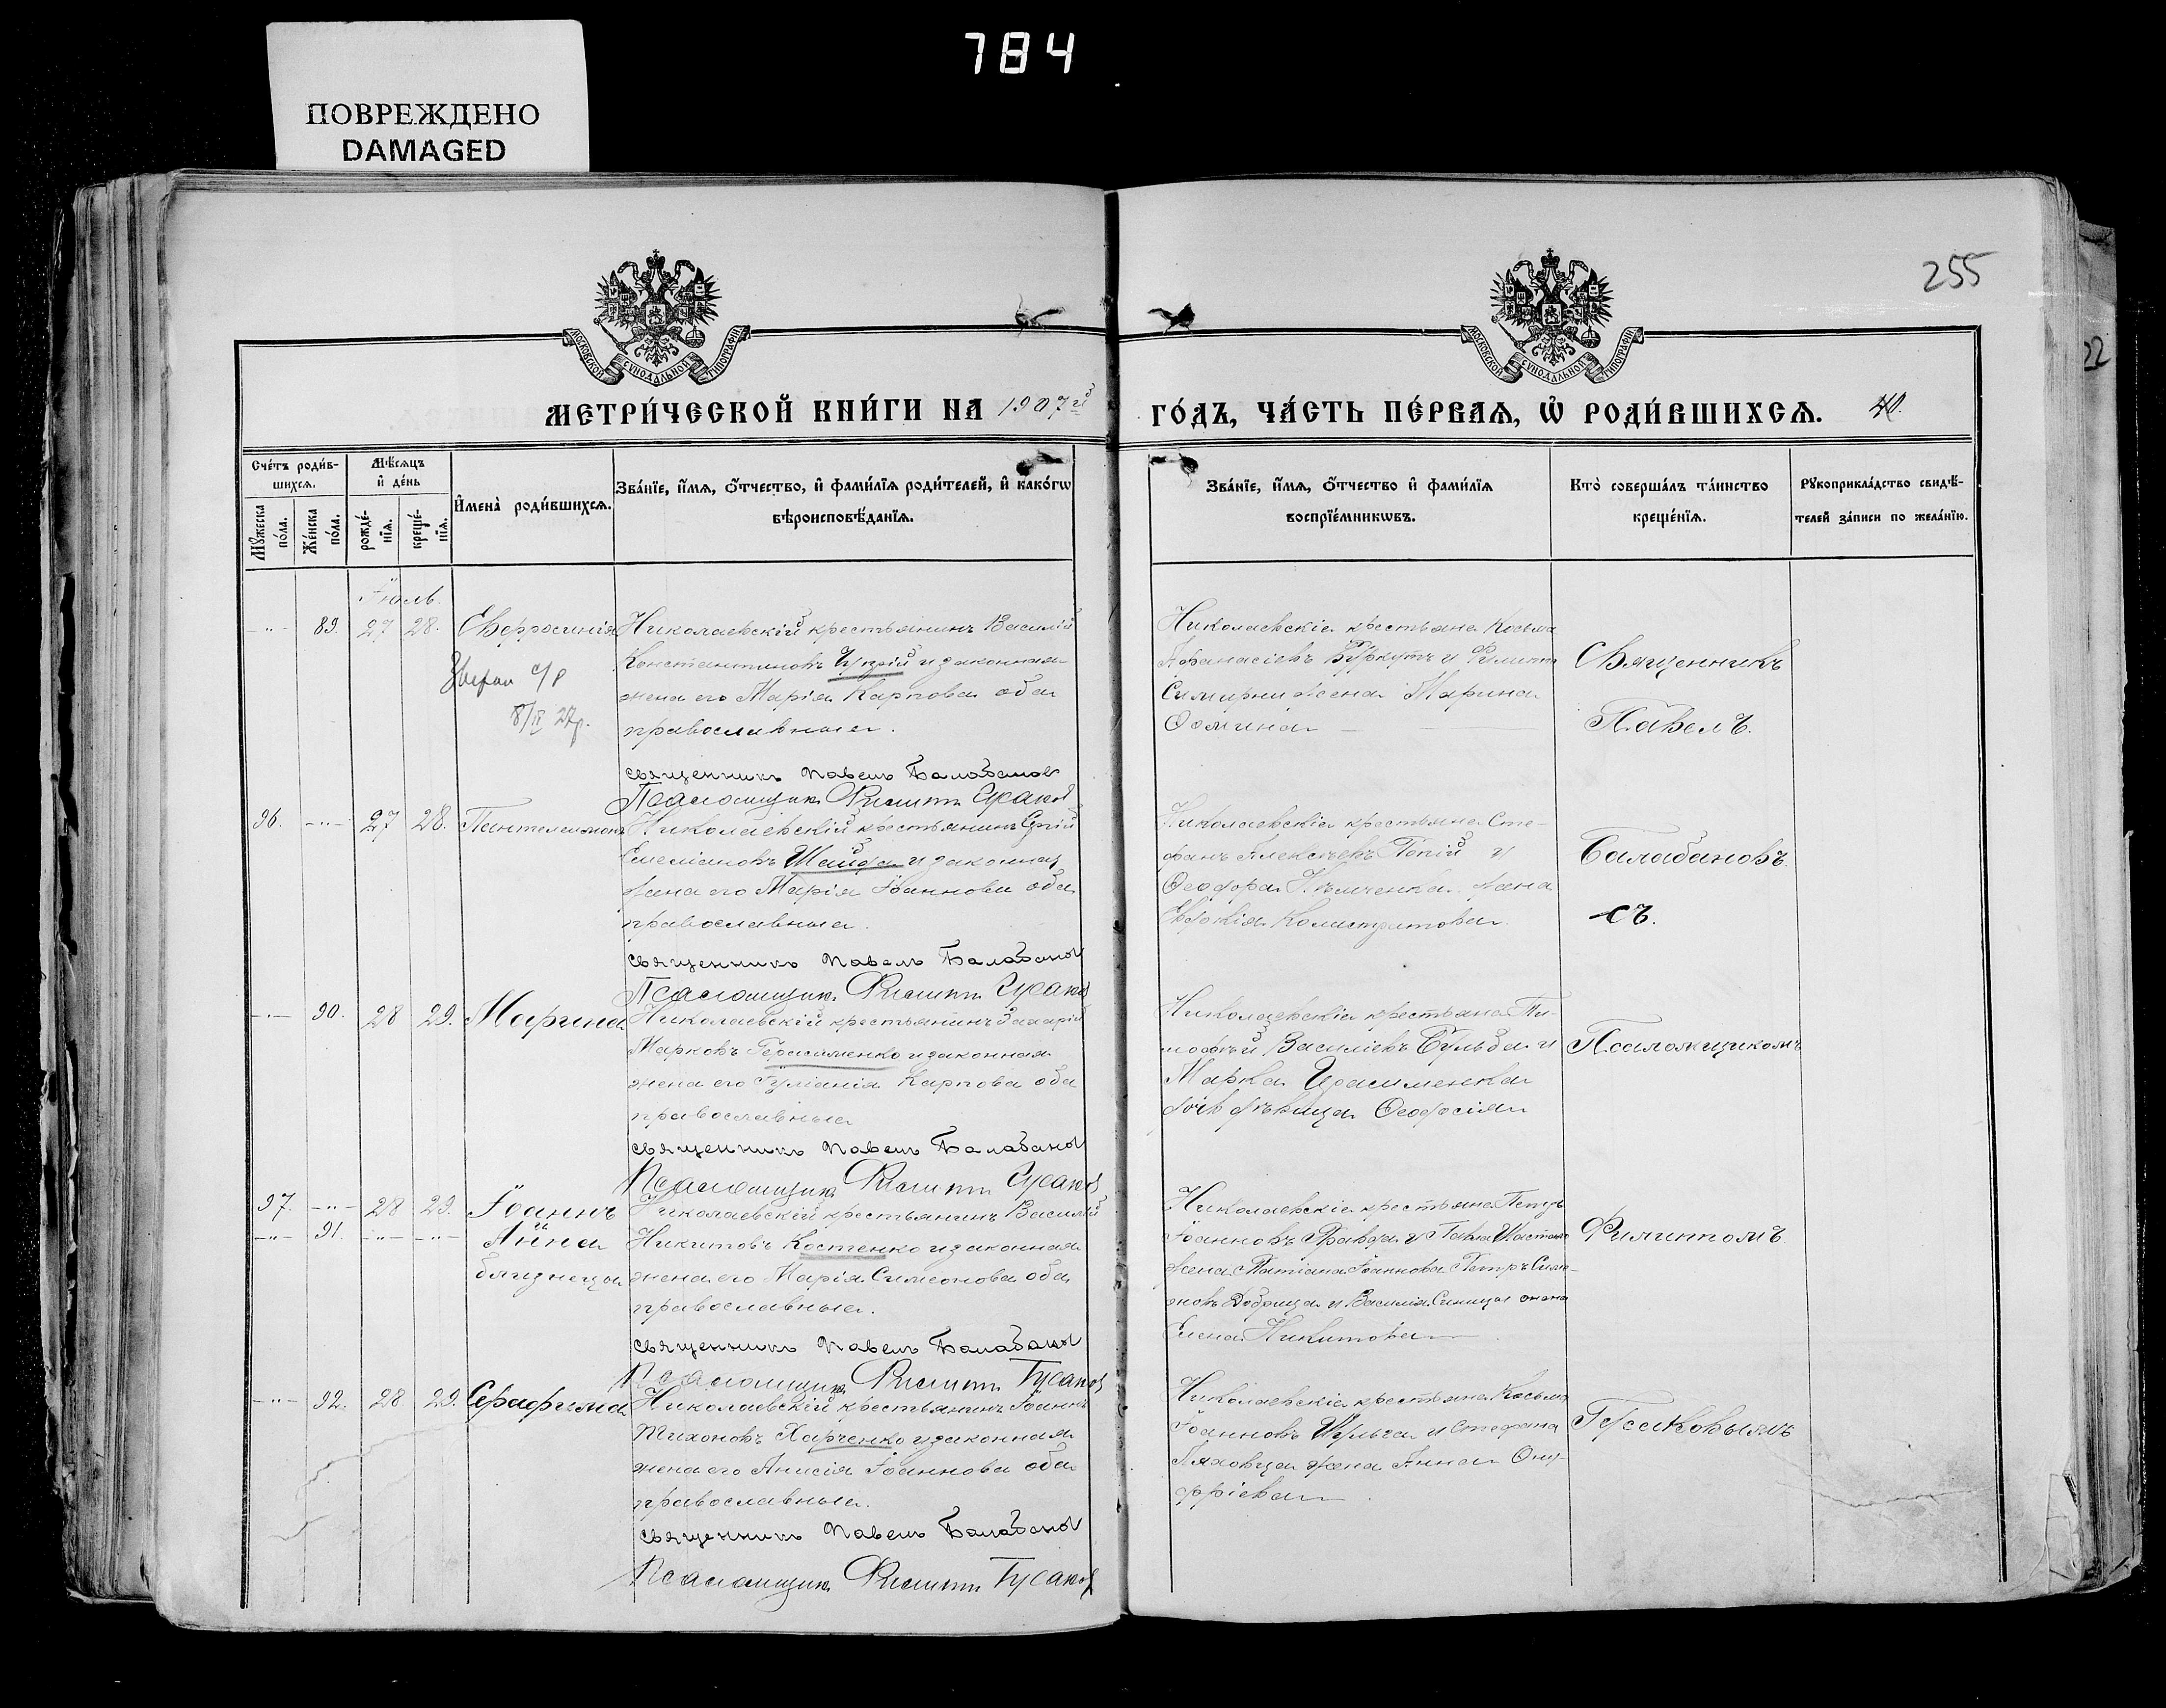 784
ПОВРЕЖДЕНО
DAMAGED
255
22
МОСКОВСКОЙ СѴНОДАЛЬНОЙ ТИПОГРАФІИ
МОСКОВСКОЙ СѴНОДАЛЬНОЙ ТИПОГРАФІИ
МЕТРИ́ЧЕСКОЙ КНИ́ГИ НА 1907й ГО́ДЪ, ЧА́СТЬ ПЕ́РВАѦ, Ѡ҆ РОДИ́ВШИХСѦ. 40.
Сче́тъ роди́в-
шихсѧ.
Мꙋ́жеска по́ла.
Же́нска по́ла.
Мѣ́сѧцъ
и҆ де́нь
рожде́-
нїѧ.
креще́-
нїѧ.
И҆мена̀ роди́вшихсѧ.
Зва́нїе, и҆́мѧ, ѻ҆́тчество, и҆ фами́лїѧ роди́телей, и҆ како́гѡ
вѣроисповѣ́данїѧ.
Зва́нїе, и҆́мѧ, ѻ҆́тчество и҆ фами́лїѧ
воспрїе́мникѡвъ.
Кто̀ соверша́лъ та́инство
креще́нїѧ.
Рꙋкоприкла́дство свидѣ́-
телей за́писи по жела́нїю.
Іюль.
-"- 89. 27 28. Евфросинія
Николаевскій крестьянинъ Василій
Константиновъ Чуприй и законная
жена его Марія Карпова оба
православные.
8/IX 27р.
священникъ Павелъ Балабановъ
Псаломщик Филипп Гусаков
Николаевскіе крестьяне Косьма
Афанасіевъ Буркутъ и Филиппа
жена Марина
Фомина
Священникъ
Павелъ
96. -"- 27 28. Пантелеимонъ
Николаевскій крестьянинъ
Емеліановъ Шайда и законная
жена его Марія Іоаннова оба
православные.
священникъ Павелъ Балабанов
Псаломщик Филипп Гусаков
Николаевскіе крестьяне Сте-
фанъ Алексѣевъ и
Феодора жена
Евдокія Калистратова.
Балабановъ
съ.
-"- 90. 28 29. Марина
Николаевскій крестьянинъ Захарій
Марковъ Герасименко и законная
жена его Іуліанія Карпова оба
православные
священникъ Павелъ Балабанов
Псаломщик Филипп Гусаков
Николаевскіе крестьяне Ти-
мофѣй Василіевъ Бульба и
Марка Герасименка
дочь дѣвица Феодосія
Псаломщикомъ
97. -"- 28 29. Іоаннъ
-"- 91. -"- -"- Анна
близнецы
Николаевскій крестьянинъ Василій
Никитовъ Костенко и законная
жена его Марія Симеонова оба
православные.
священникъ Павелъ Балабанов
Псаломщик Филипп Гусаков
Николаевскіе крестьяне Петръ
Іоанновъ Правда и Павла
жена Татіана Іоаннова Петръ Симе-
оновъ и Василія Синицы жена
Елена Никитова
Филиппомъ
-"- 92. 28 29. Серафима
Николаевскій крестьянинъ Іоаннъ
Тихоновъ Харченко и законная
жена его Анисія Іоаннова оба
православные.
священникъ Павелъ Балабанов
Псаломщик Филипп Гусаков
Николаевскіе крестьяне Косьма
Іоанновъ Шульга и Стефана
жена Анна Ону-
фріева
Гусаковымъ